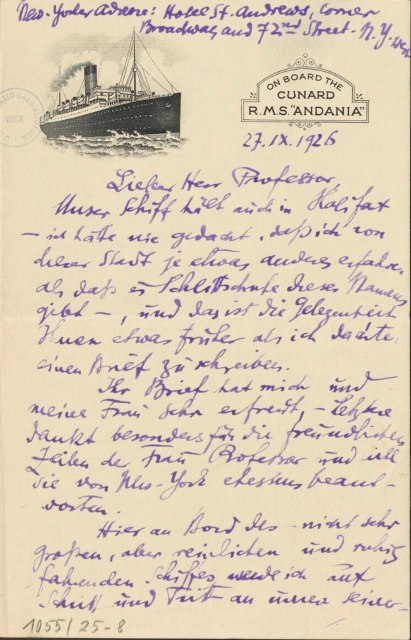 New-Yorker Adresse: Hotel St. Andrews, corner
Broadway and 72nd Street - N.Y.
WIEN
ON BOARD THE
CUNARD
R.M.S. "ANDANIA"
27.IX.1926
Lieber Herr Professor,
Unser Schiff hält auch in Halifax
– ich hätte nie gedacht, daß ich von
dieser Stadt je etwas anderes erfahre,
als daß es Schlittschuhe dieses Namens
gibt –, und das ist die Gelegenheit
Ihnen etwas früher als ich dachte,
einen Brief zu schreiben.
Ihr Brief hat mich und
meine Frau sehr erfreut, – Letztere
dankt besonders für die freundlichen
Zeilen der Frau Professor und will
sie von New-York ehestens beant-
worten.
Hier an Bord des – nicht sehr
großen, aber reinlichen und ruhig
fahrenden Schiffes, werde ich auf
Schritt und Tritt an unsere
1055/25-8